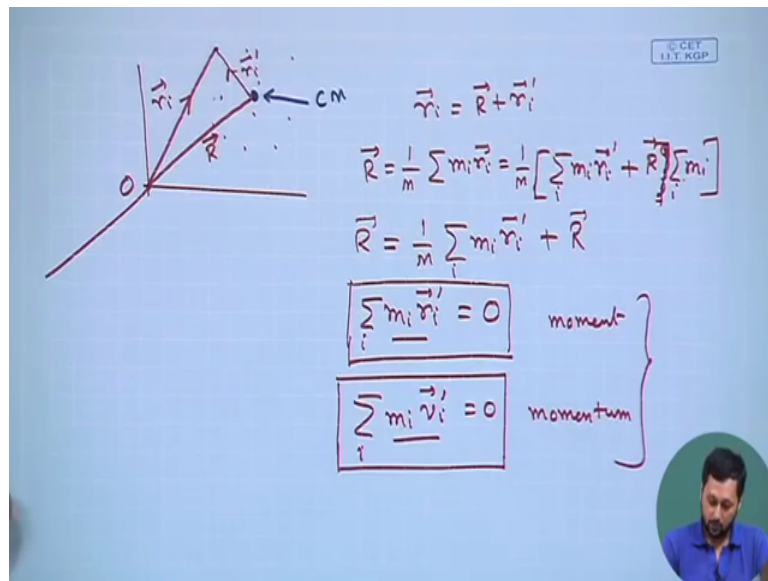 © CET
I.I.T. KGP
r⃗ᵢ
r⃗ᵢ'
R⃗
O
CM
r⃗ᵢ = R⃗ + r⃗ᵢ'
R⃗ = 1/M ∑ mᵢ r⃗ᵢ = 1/M [∑ᵢ mᵢ r⃗ᵢ' + R⃗ ∑ᵢ mᵢ]
R⃗ = 1/M ∑ᵢ mᵢ r⃗ᵢ' + R⃗
∑ᵢ mᵢ r⃗ᵢ' = 0 moment
∑ᵢ mᵢ v⃗ᵢ' = 0 momentum